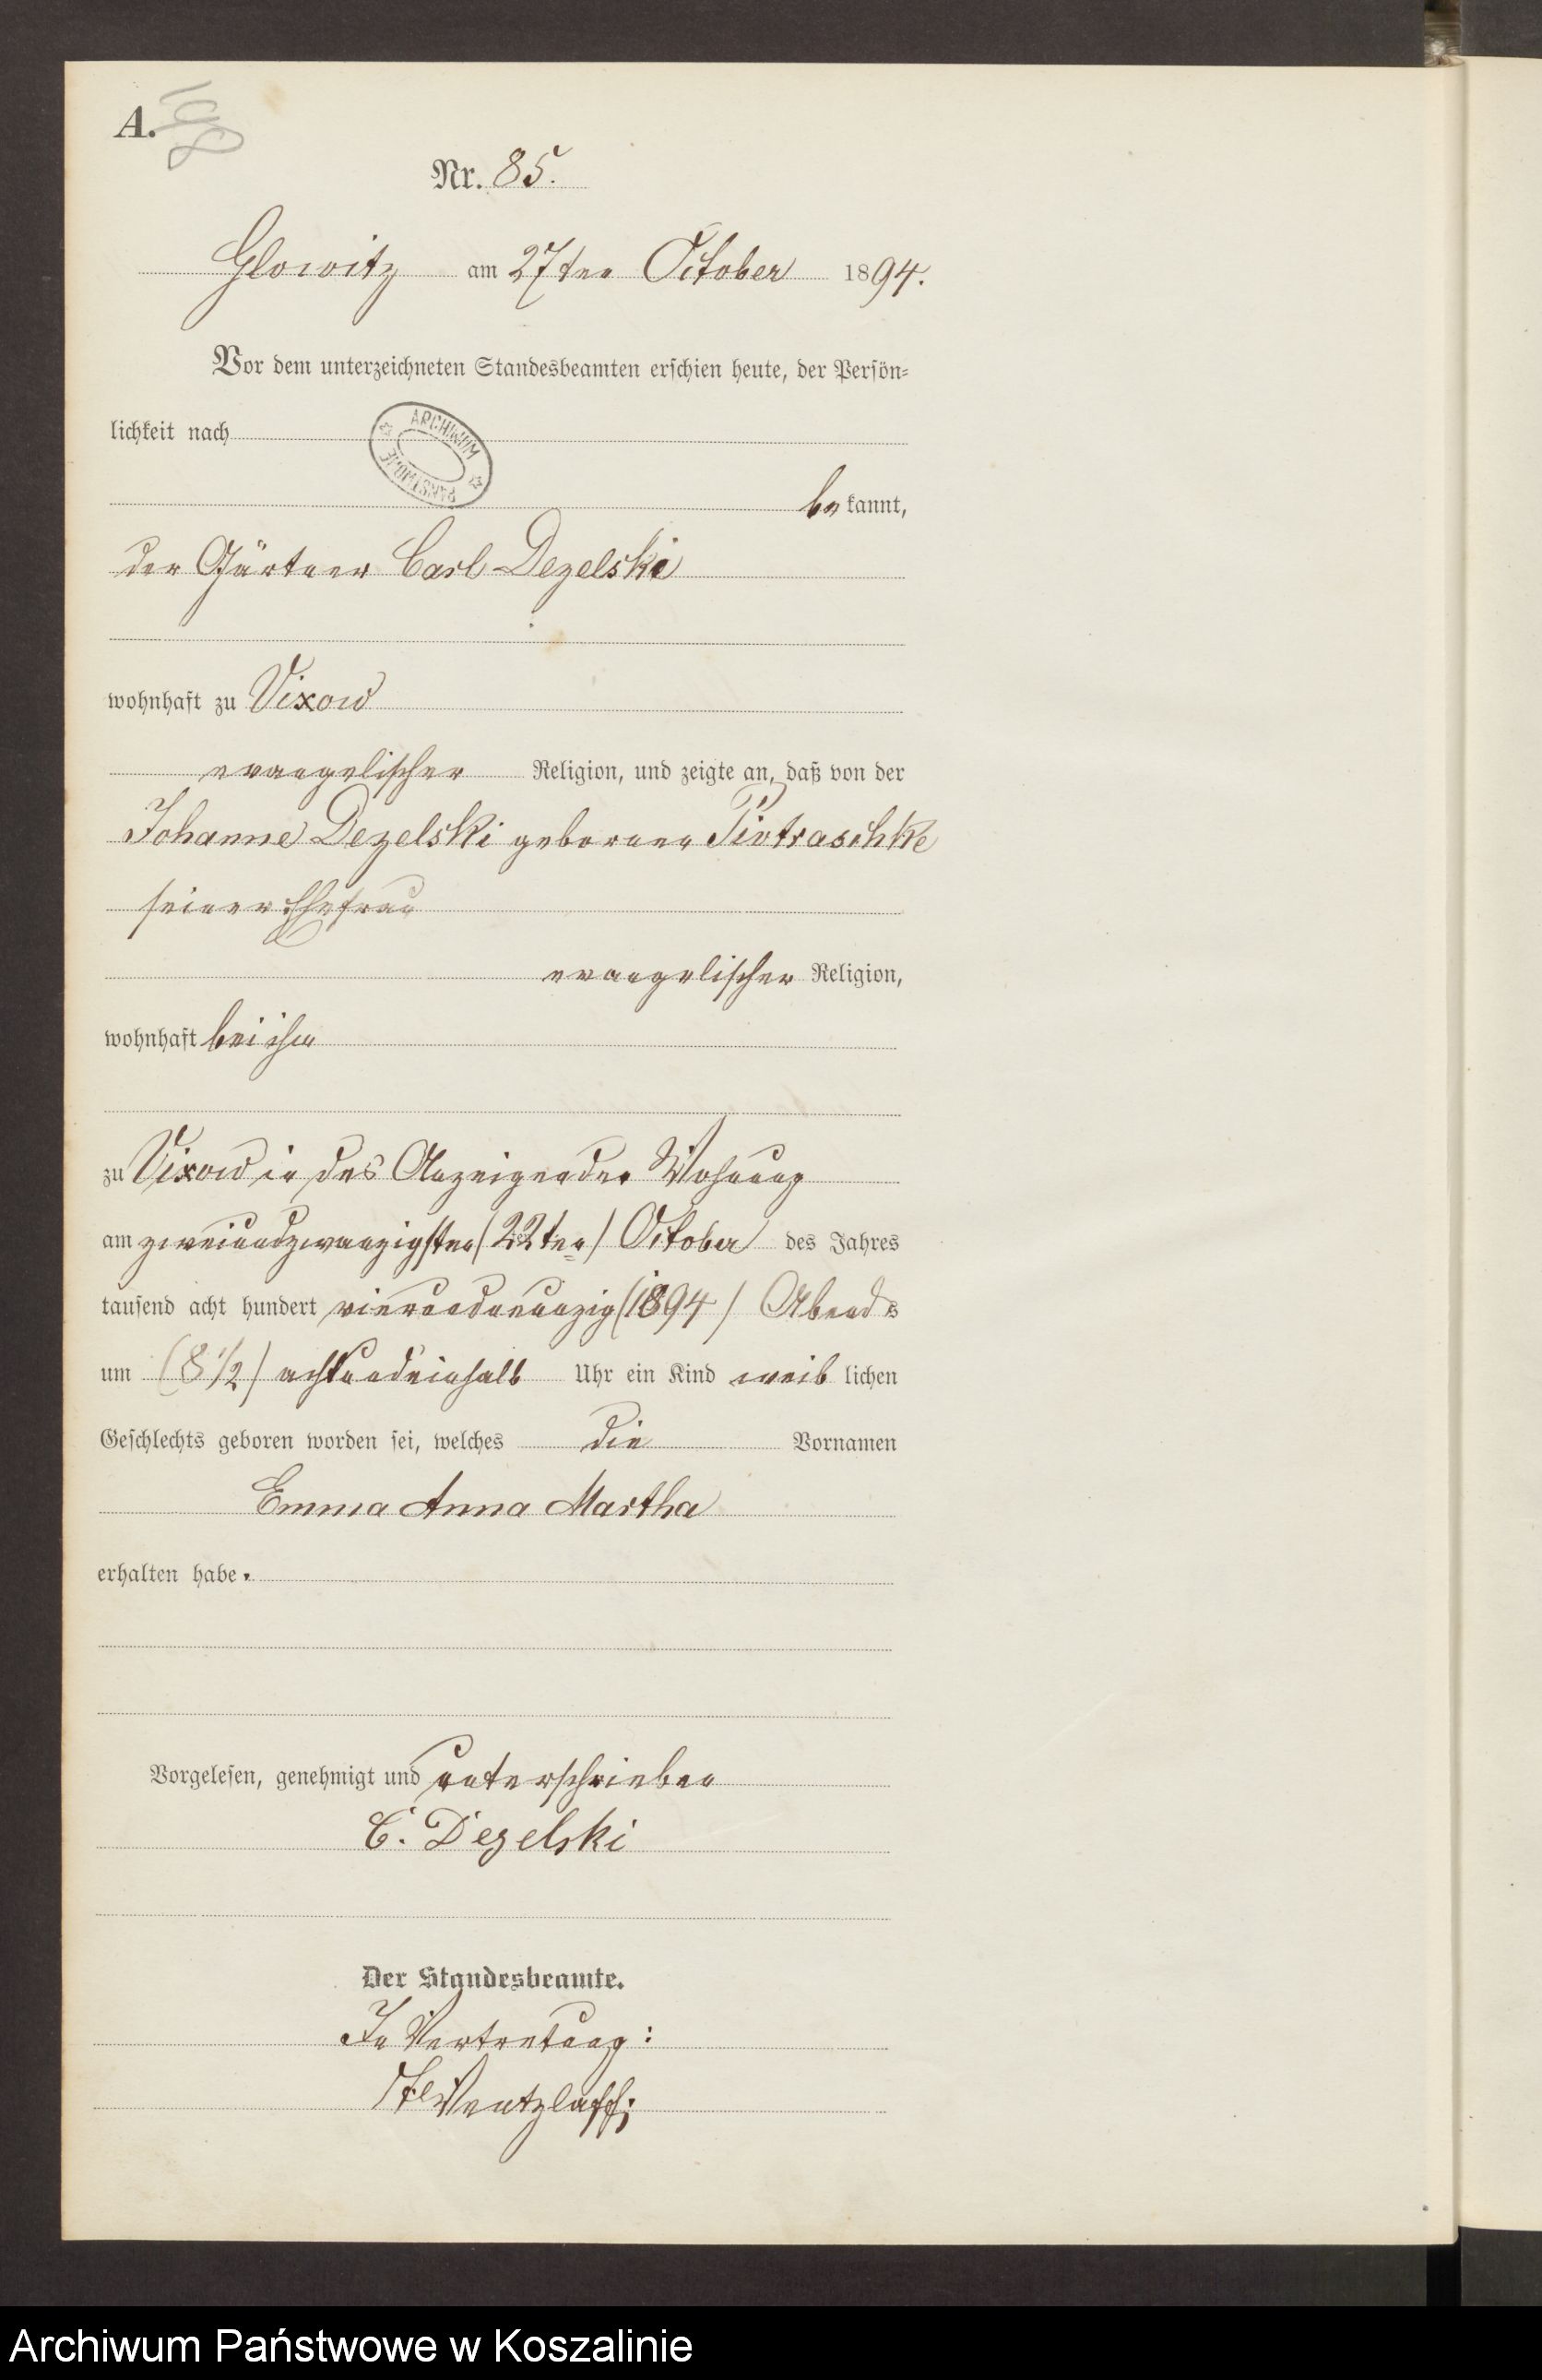 A.
Nr. 85.
Glowitz am 27ten October 1894.
Vor dem unterzeichneten Standesbeamten erschien heute, der Persön=
lichkeit nach
ARCHIWUM PAŃSTWOWE
bekannt,
der Gärtner Carl Dezelski
wohnhaft zu Vixow
evangelischer Religion, und zeigte an, daß von der
Johanne Dezelski geborene Piotraschke
seiner Ehefrau
evangelischer Religion,
wohnhaft bei ihm
zu Vixow in des Anzeigenden Wohnung
am zweiundzwanzigsten (22ten) October des Jahres
tausend acht hundert vierundneunzig (1894) Abends
um (8 1/2) achtundeinhalb Uhr ein Kind weiblichen
Geschlechts geboren worden sei, welches die Vornamen
Emma Anna Martha
erhalten habe.
Vorgelesen, genehmigt und unterschrieben
C. Dezelski
Der Standesbeamte.
In Vertretung:
Wentzlaff
Archiwum Państwowe w Koszalinie